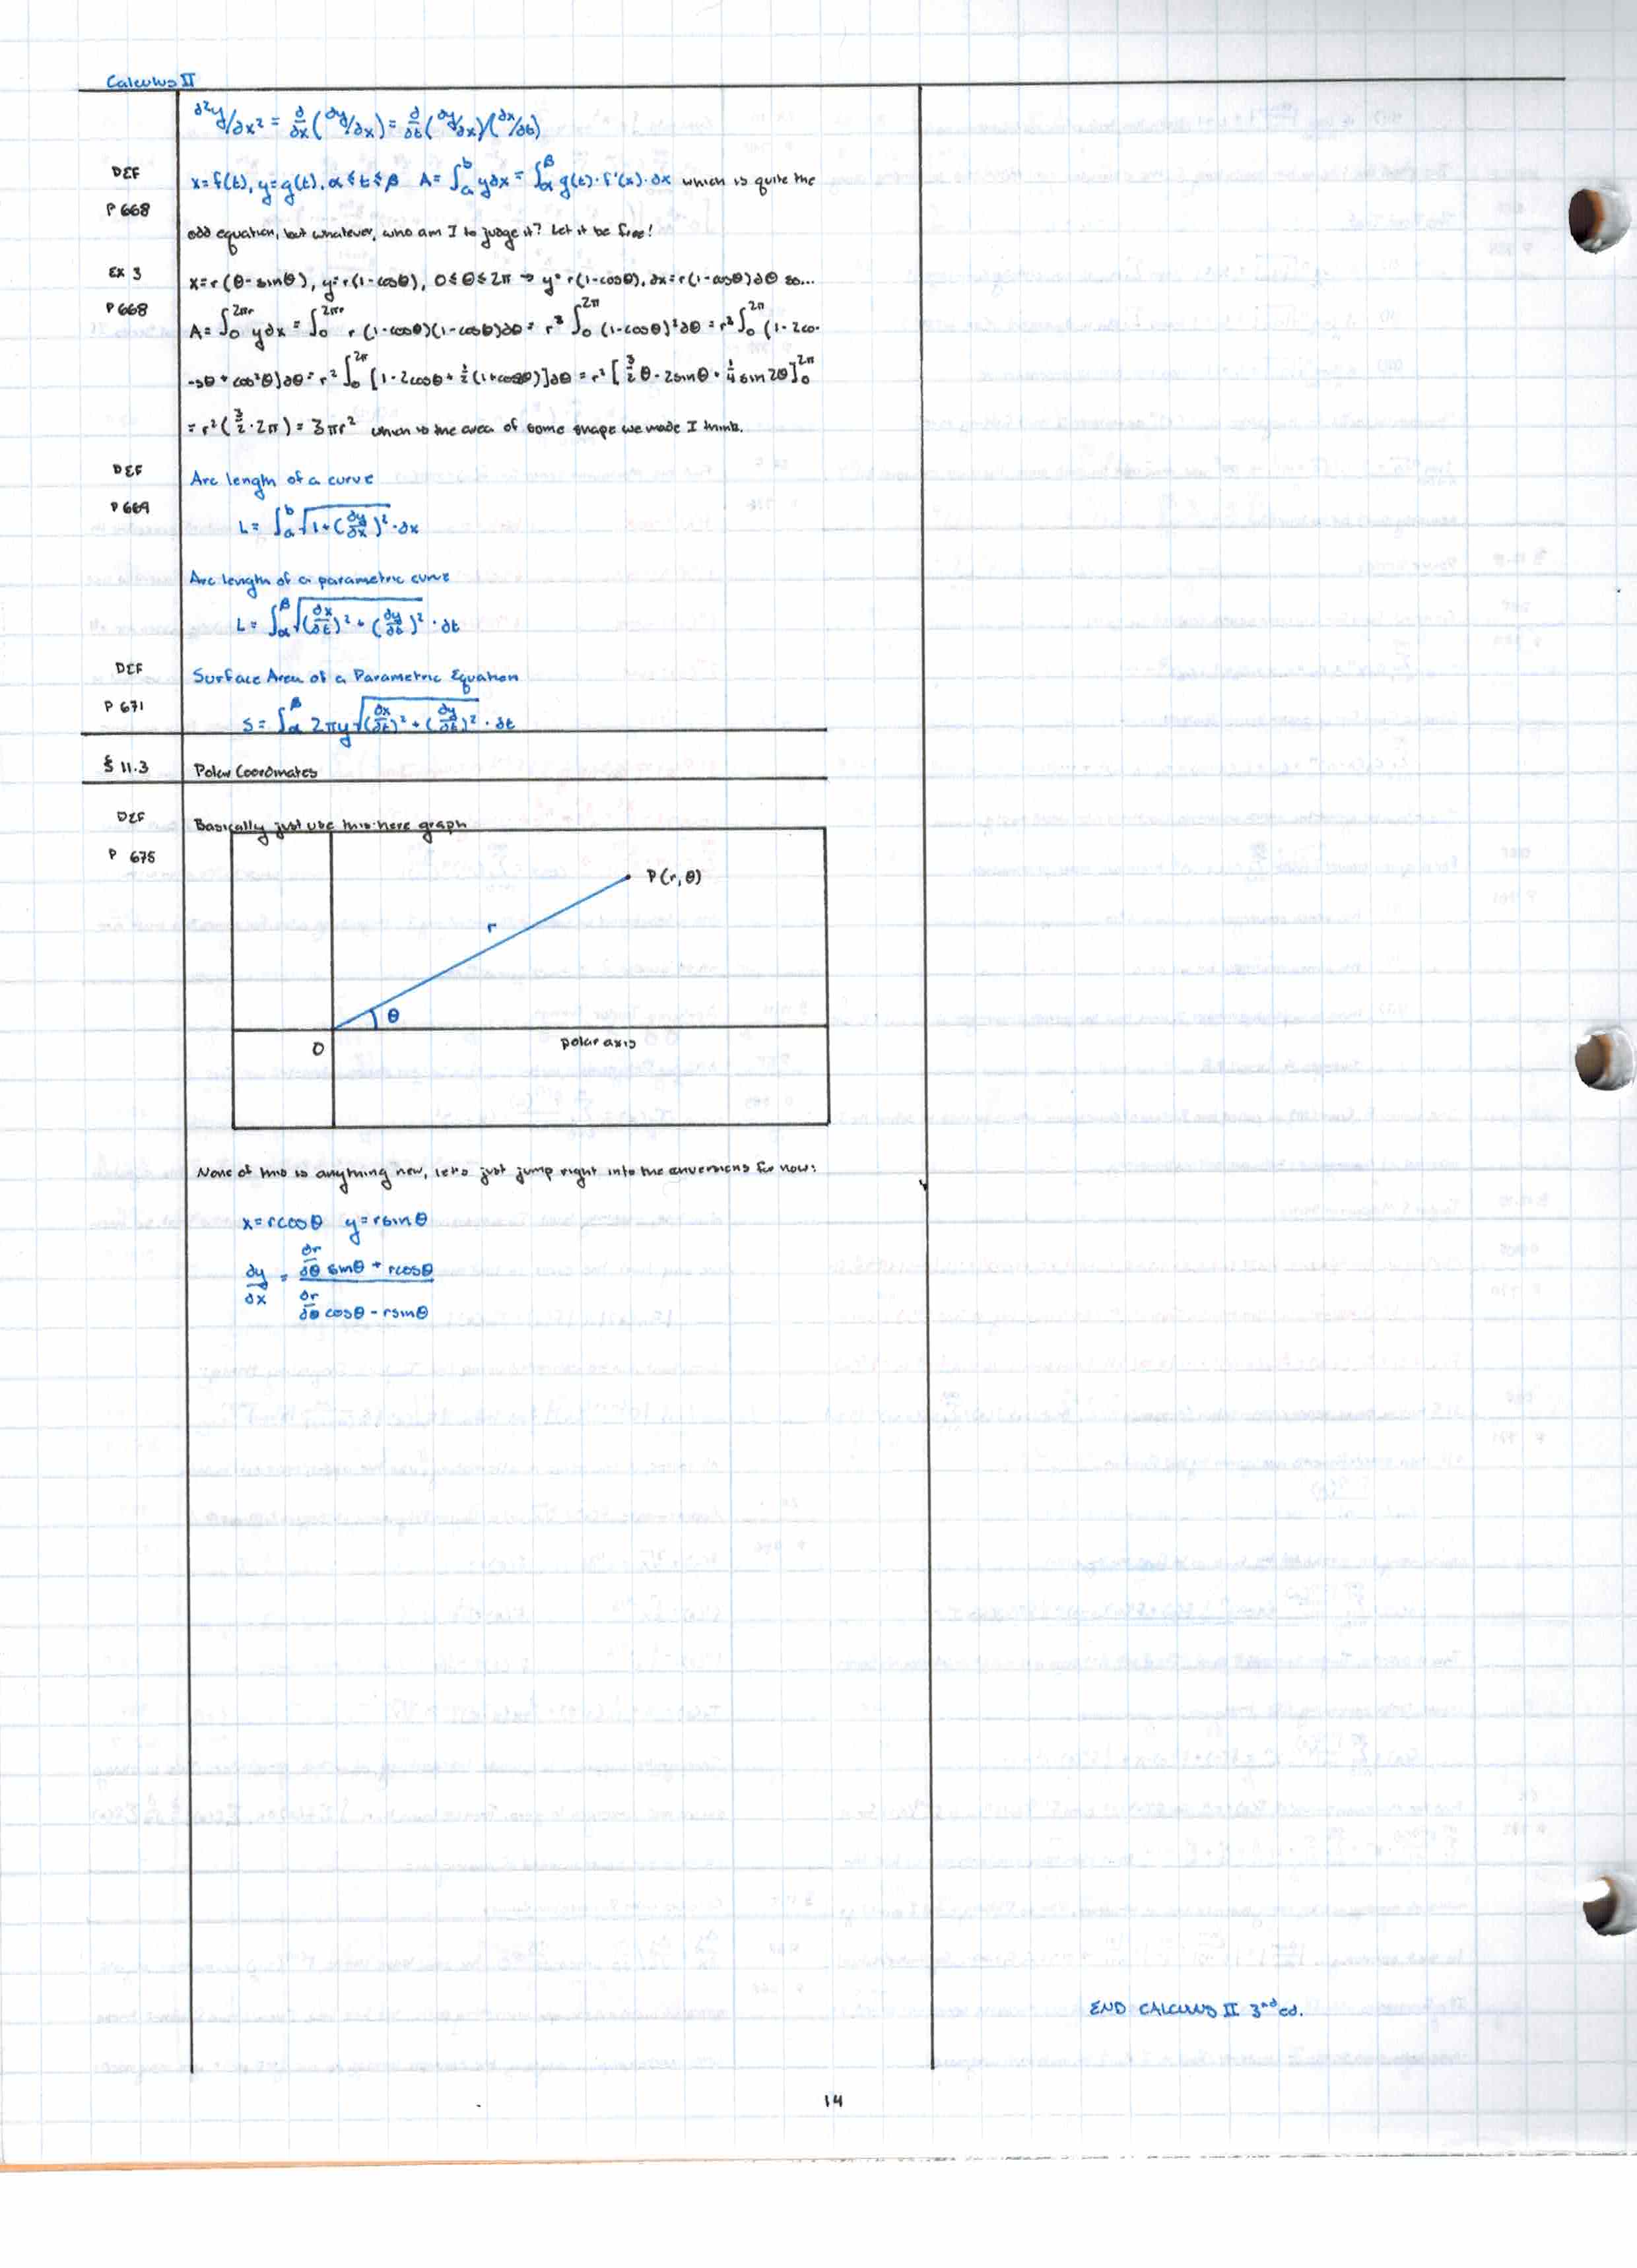 Calculus II
∂²y/∂x² = ∂/∂x (∂y/∂x) = ∂/∂t (∂y/∂x)/(∂x/∂t)
DEF
P 668
x=f(t), y=g(t), α≤t≤β A=∫_a^b y∂x = ∫_α^β g(t)·f'(x)·∂x which is quite the
odd equation, but whatever, who am I to judge it? Let it be free!
EX 3
P 668
x=r(θ-sinθ), y=r(1-cosθ), 0≤θ≤2π → y=r(1-cosθ), ∂x=r(1-cosθ)∂θ so...
A=∫_0^{2πr} y∂x = ∫_0^{2πr} r(1-cosθ)(1-cosθ)∂θ = r² ∫_0^{2π} (1-cosθ)²∂θ = r² ∫_0^{2π} (1-2co-
-sθ + cos²θ)∂θ = r² ∫_0^{2π} [1-2cosθ+½(1+cos2θ)]∂θ = r² [3/2 θ - 2sinθ + ¼ sin 2θ]_0^{2π}
= r²(3/2 · 2π) = 3πr² which is the area of some shape we made I think.
DEF
P 669
Arc length of a curve
L = ∫_a^b √(1+(∂y/∂x)²) · ∂x
Arc length of a parametric curve
L = ∫_α^β √((∂x/∂t)² + (∂y/∂t)²) · ∂t
DEF
P 671
Surface Area of a Parametric Equation
S = ∫_α^β 2πy√((∂x/∂t)² + (∂y/∂t)²) · ∂t
§ 11.3
Polar Coordinates
DEF
P 675
Basically just use this here graph
P(r,θ)
r
θ
O
polar axis
None of this is anything new, let's just jump right into the conversions for now:
x=rcosθ y=rsinθ
∂y/∂x = (∂r/∂θ sinθ + rcosθ)/(∂r/∂θ cosθ - rsinθ)
END CALCULUS II 3ʳᵈ ed.
14